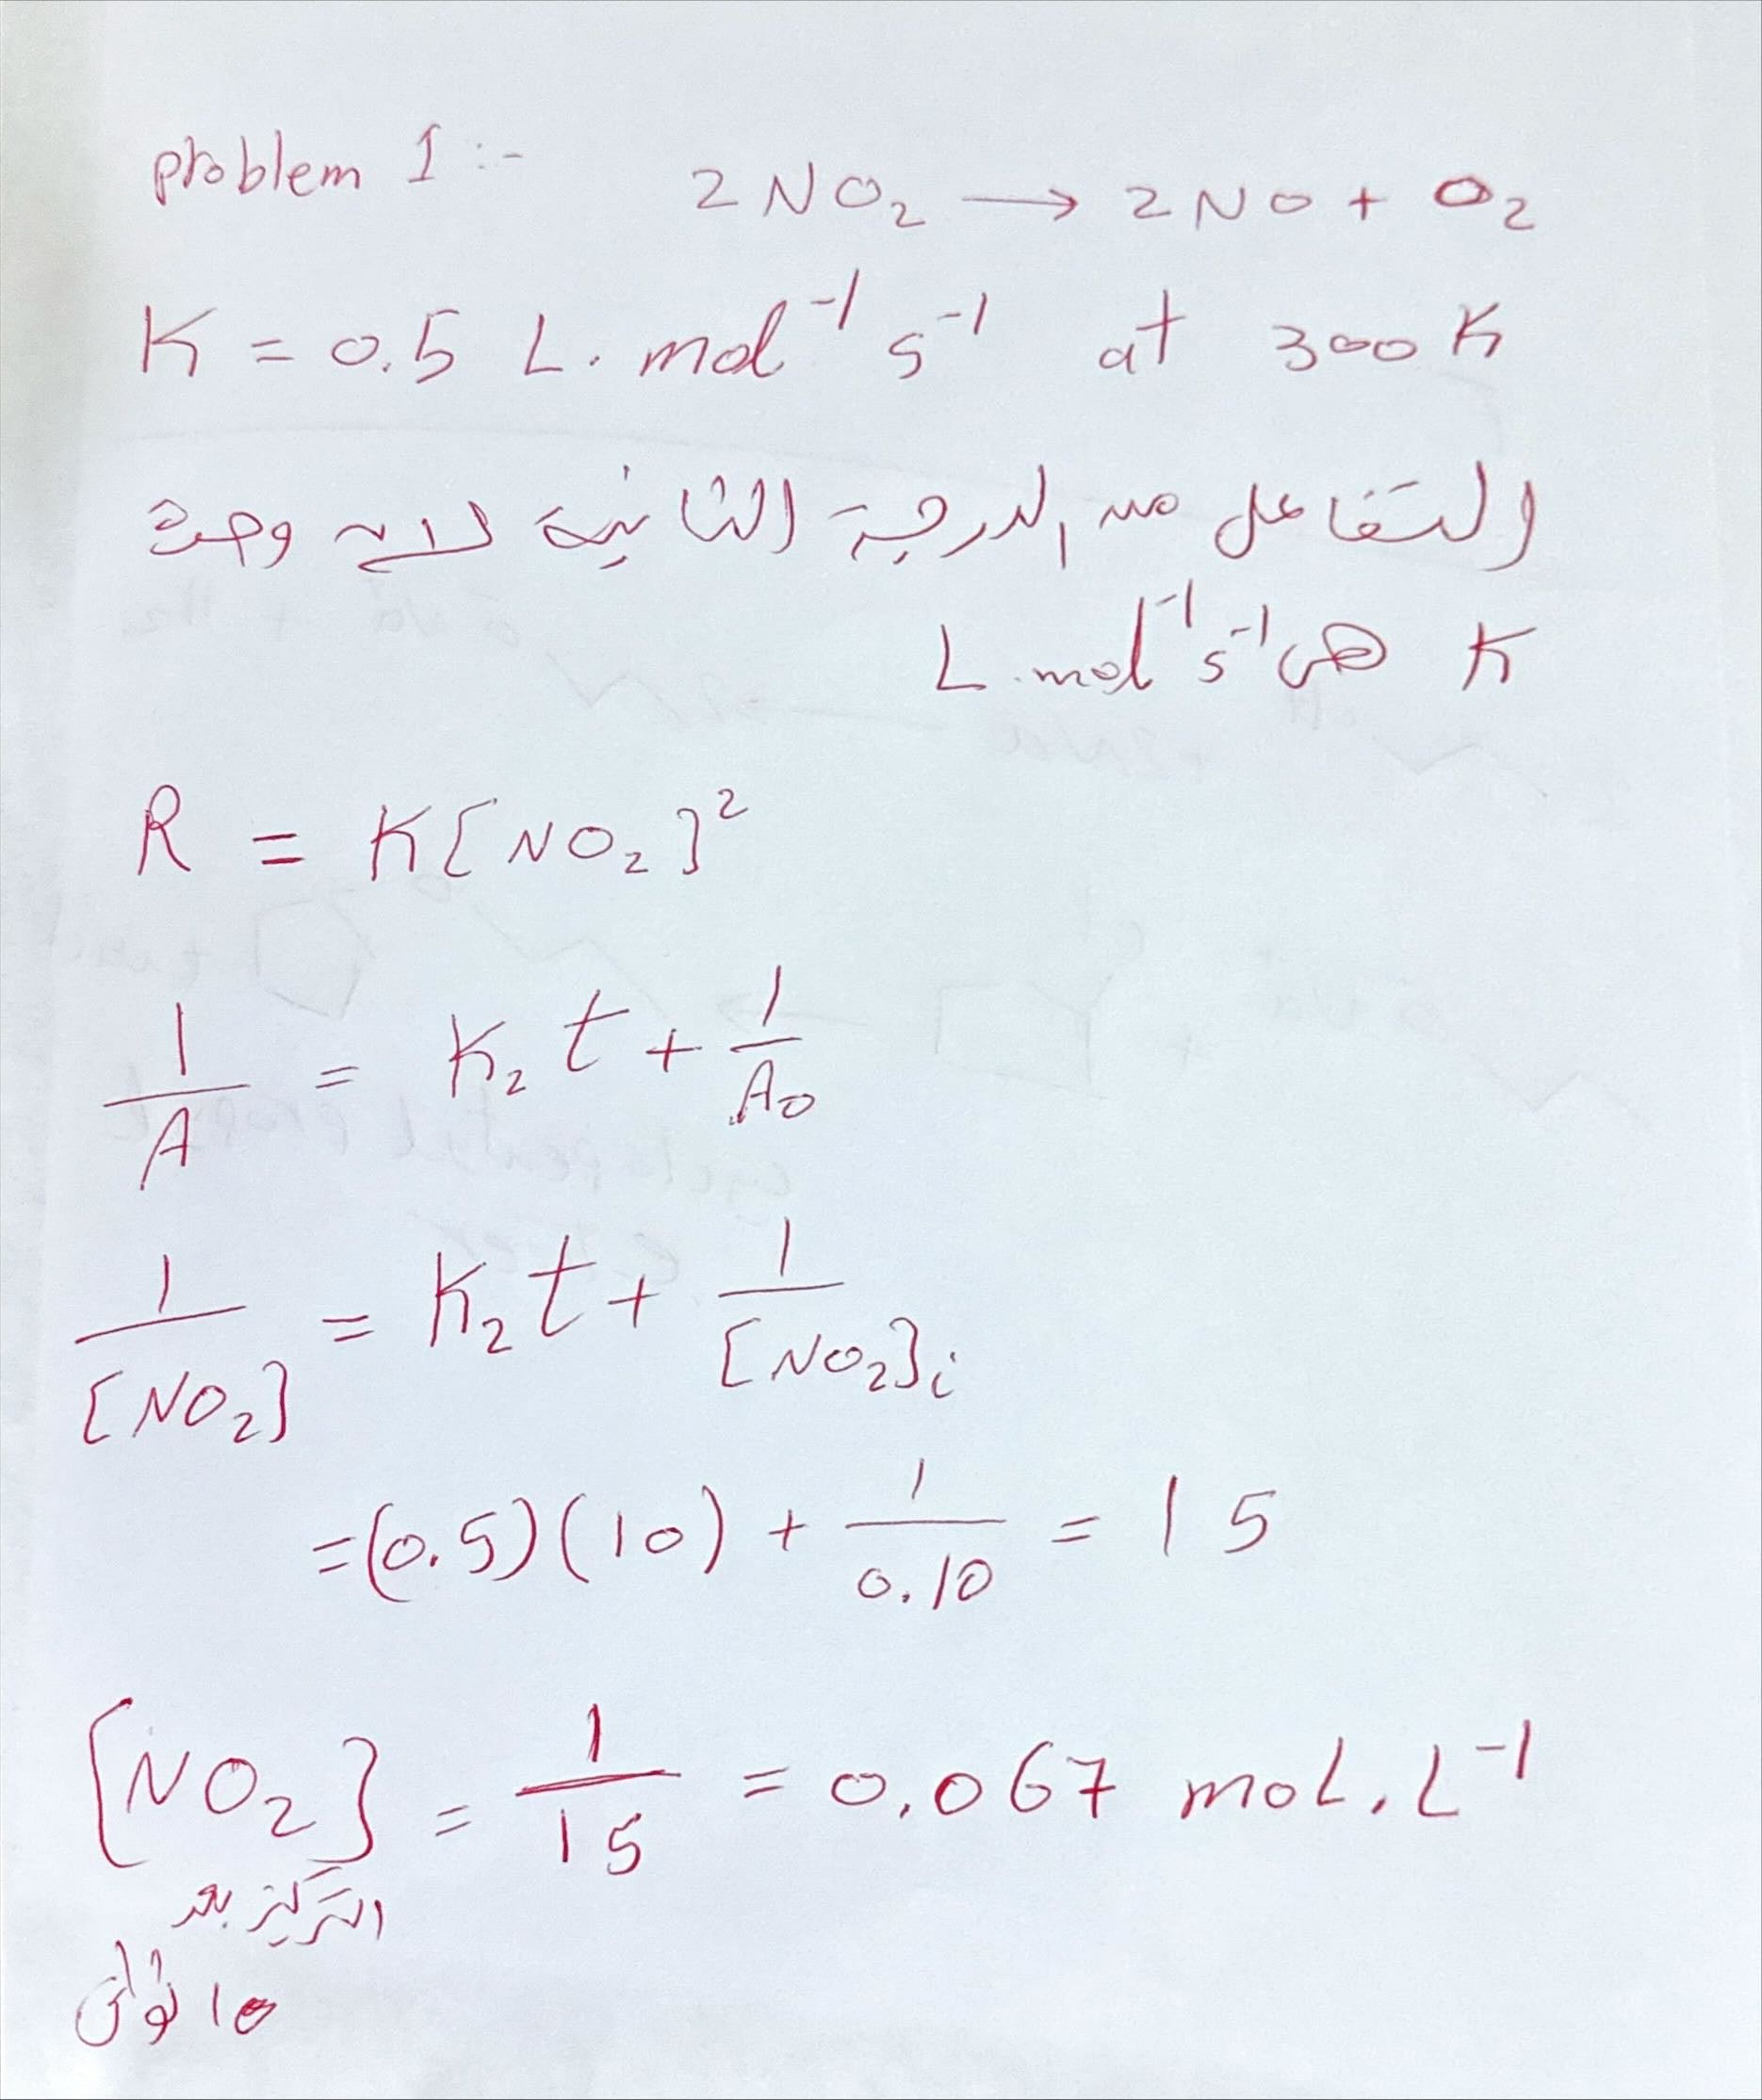 problem 1 :-
2 NO₂ → 2 NO + O₂
K = 0.5 L. mol⁻¹ s⁻¹ at 300 K
التفاعل من الدرجة الثانية لانه وحدة
K هى L.mol⁻¹ s⁻¹
R = K[NO₂]²
1/A = K₂ t + 1/A₀
1/[NO₂] = K₂ t + 1/[NO₂]ᵢ
=(0.5)(10) + 1/0.10 = 15
[NO₂] = 1/15 = 0.067 moL.L⁻¹
التركيز بعد
10 ثوانى